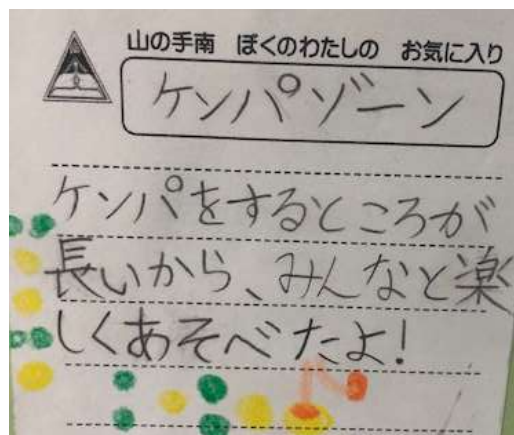 山の手南 ぼくのわたしの お気に入り
ケンパゾーン
ケンパをするところが
長いから、みんなと楽
しくあそべたよ!